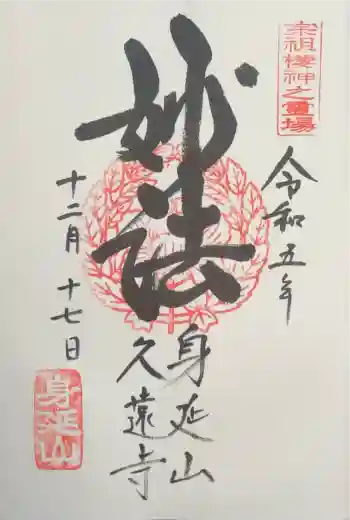 宗祖棲神之霊場
令和五年
妙法
身延山
久遠寺
十二月十七日
身延山